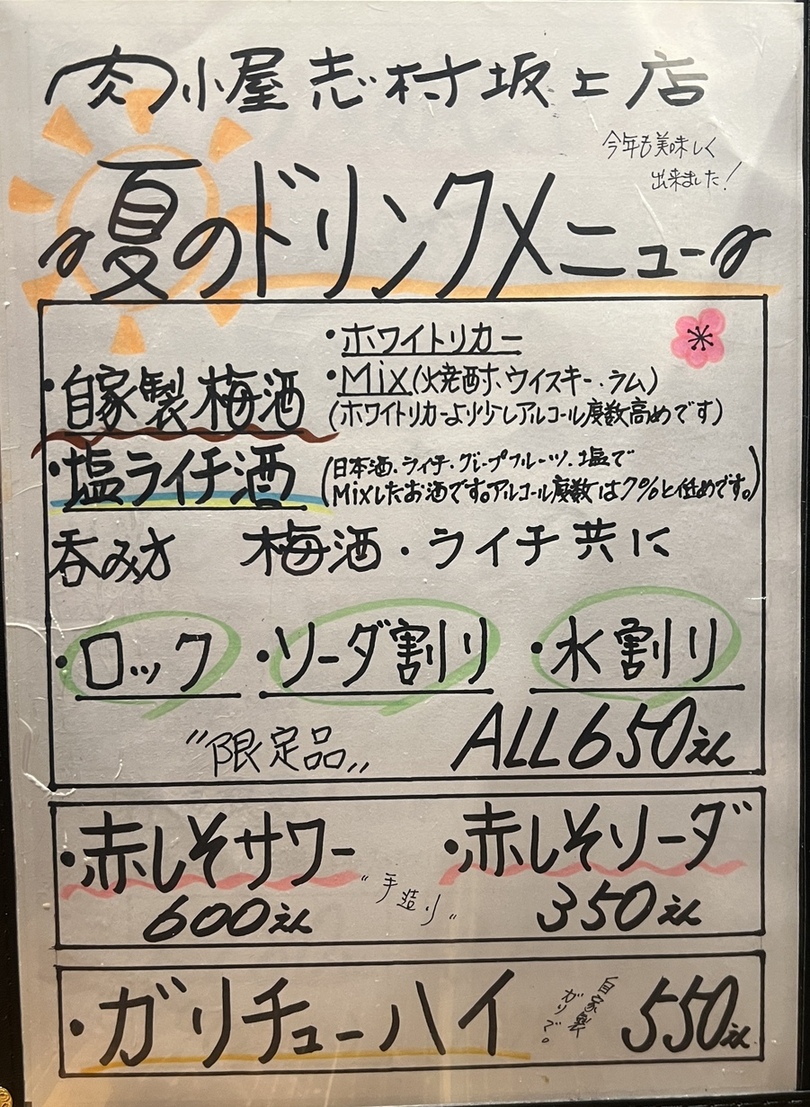 肉小屋 志村坂上店
今年も美味しく
出来ました！
夏のドリンクメニュー
・自家製梅酒
・ホワイトリカー
・Mix(焼酎、ウイスキー、ラム)
(ホワイトリカーより少しアルコール度数高めです)
・塩ライチ酒
(日本酒・ライチ・グレープフルーツ・塩で
Mixしたお酒です。アルコール度数は7%と低めです。)
呑み方 梅酒・ライチ共に
・ロック ・ソーダ割り ・水割り
"限定品" ALL650えん
・赤しそサワー ・赤しそソーダ
"手造り"
600えん 350えん
・ガリチューハイ 自家製
ガリで。
550えん